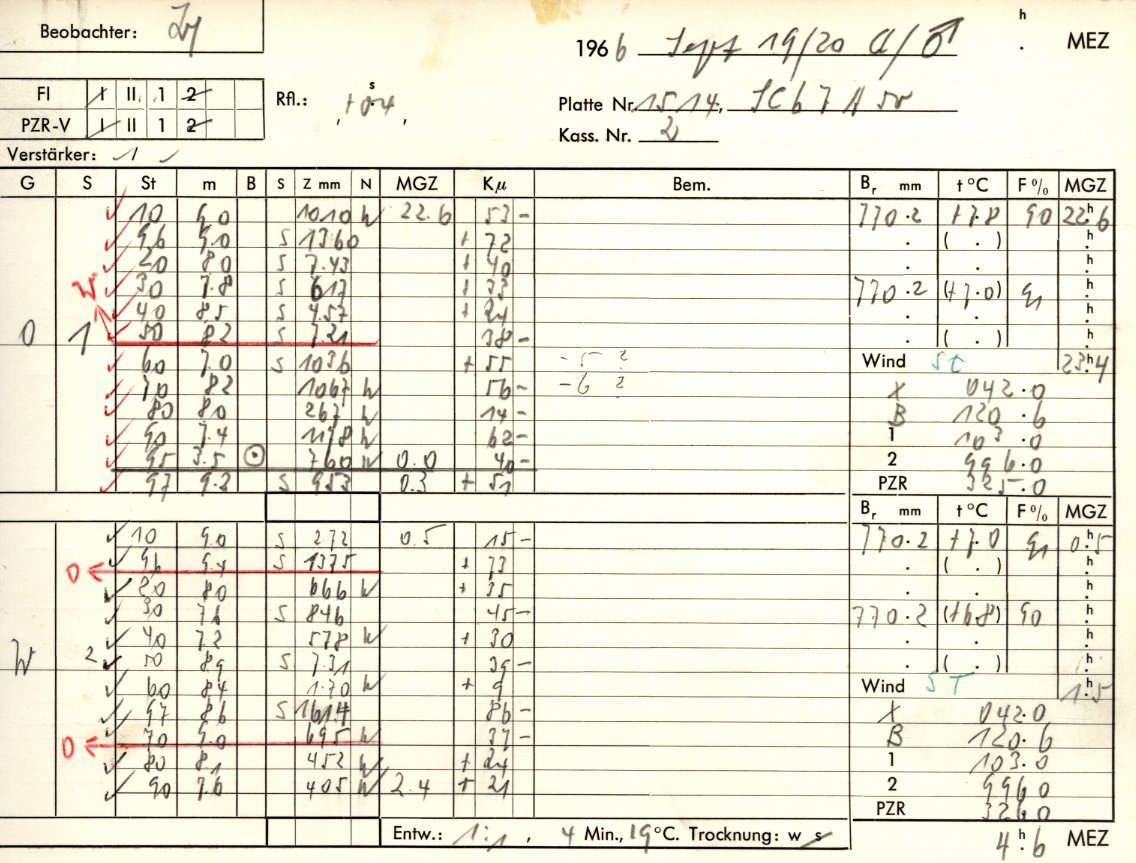 Beobachter:
1966 Sept 19/20 h . MEZ
FI I II 1 2
PZR-V I II 1 2
Rfl.: +0.4 s
Platte Nr. 1514,
Kass. Nr. 2
Verstärker: 1
G S St m B S Z mm N MGZ Kμ Bem. Br mm t °C F % MGZ
10 9.0 1010 W 22.6 53 - 770.2 +7.8 90 22h6
96 9.0 S 1360 + 72 ( . )
20 80 S 7.43 + 40
W 30 7.8 S 617 + 33 770.2 (+7.0) 91
40 8.5 S 4.57 + 24
0 1 50 82 S 7.21 38 - ( . )
60 7.0 S 1036 + 55 - 5 ? Wind ST 23h4
70 82 1067 W 56 - - 6 ? X 042.0
80 80 267 W 14 - B 120.6
90 7.4 1198 W 62 - 1 103.0
95 3.5 ⊙ 760 W 0.0 40 - 2 996.0
97 9.2 S 953 0.3 + 51 PZR 325.0
Br mm t °C F % MGZ
10 9.0 S 272 0.5 15 - 770.2 +7.0 91 0h5
0 96 S 1375 + 73 ( . )
20 80 666 W + 35
30 7.6 S 846 45 - 770.2 (+6.8) 90
40 7.2 578 W + 30
W 2 50 89 S 7.31 39 - ( . )
60 84 1.70 W + 9 Wind ST 1h5
97 86 S 1614 86 - X 042.0
0 70 9.0 695 W 37 - B 120.6
80 81 452 W + 24 1 103.0
90 7.6 405 W 2.4 + 21 2 996.0
PZR 326.0
Entw.: 1:1, 4 Min., 19 °C. Trocknung: w s 4h6 MEZ